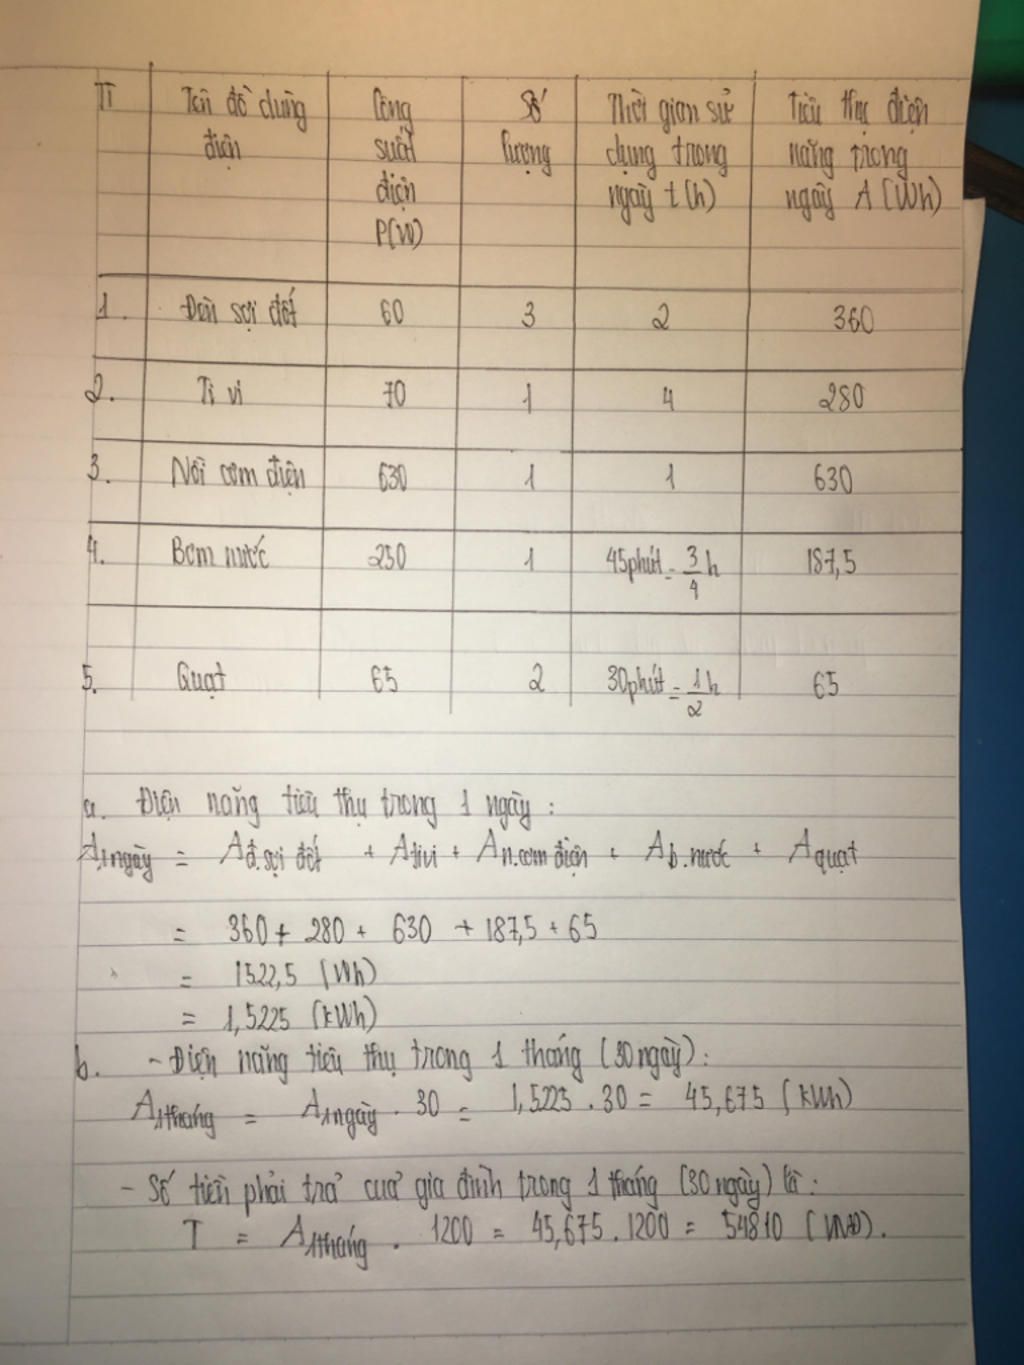 TT Tên đồ dùng điện Công suất điện P(W) Số lượng Thời gian sử dụng trong ngày t(h) Tiêu thụ điện năng trong ngày A (Wh)
1. Đèn sợi đốt 60 3 2 360
2. Ti vi 70 1 4 280
3. Nồi cơm điện 630 1 1 630
4. Bơm nước 250 1 45phút = 3/4 h 187,5
5. Quạt 65 2 30phút = 1/2 h 65
a. Điện năng tiêu thụ trong 1 ngày :
A1ngày = Ađ.sợi đốt + Ativi + An.cơm điện + Ab.nước + Aquạt
= 360 + 280 + 630 + 187,5 + 65
= 1522,5 (Wh)
= 1,5225 (kWh)
b. - Điện năng tiêu thụ trong 1 tháng (30 ngày) :
A1tháng = A1ngày . 30 = 1,5225 . 30 = 45,675 (kWh)
- Số tiền phải trả của gia đình trong 1 tháng (30 ngày) là :
T = A1tháng . 1200 = 45,675 . 1200 = 54810 (VNĐ).